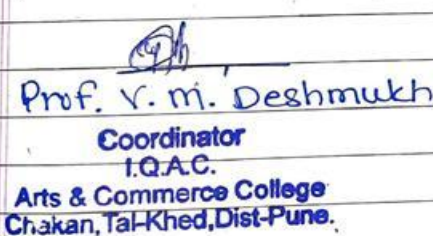 Prof. V. m. Deshmukh
Coordinator
I.Q.A.C.
Arts & Commerce College
Chakan, Tal-Khed, Dist-Pune.